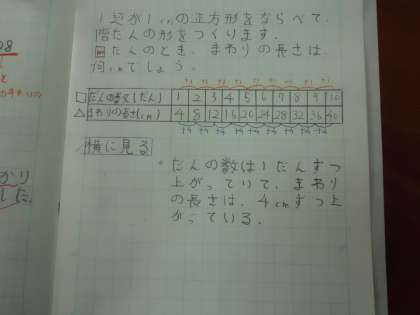 1辺が1cmの正方形をならべて、
階だんの形をつくります。
だんのとき、まわりの長さは、
何cmでしょう。
+1 +1 +1 +1 +1 +1 +1 +1 +1
□ だんの数(だん) 1 2 3 4 5 6 7 8 9 10
△ まわりの長さ(cm) 4 8 12 16 20 24 28 32 36 40
+4 +4 +4 +4 +4 +4 +4 +4 +4
横に見る
だんの数は1だんずつ
上がっていて、まわり
の長さは、4cmずつ上
がっている。